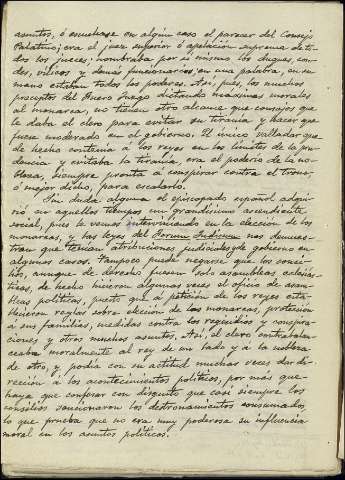 asuntos, ó escuchase en algun caso el parecer del Consejo
Palatino; era el juez superior ó apelacion suprema de to-
dos los jueces; nombraba por si mismo los duques, con-
des, vilicos y demás funcionarios; en una palabra, en su
mano estaban todos los poderes. Asi, pues, los muchos
preceptos del Fuero Juzgo dictando máximas morales
al monarca, no tienen otro alcance que consejos que
le daba el clero para evitar su tirania y hacer que
fuera moderado en el gobierno. El único valladar que
de hecho contenia á los reyes en los limites de la pru-
dencia y evitaba la tirania, era el poderio de la no-
bleza, siempre pronta á conspirar contra el trono,
ó mejor dicho, para escalarlo.
Sin duda alguna el episcopado español adqui-
rió en aquellos tiempos un grandísimo ascendiente
social, pues le vemos interviniendo en la eleccion de los
monarcas, y las leyes del Forum Judicum nos demues-
tran que tenian atribuciones judiciales y de gobierno en
algunos casos. Tampoco puede negarse que los conci-
lios, aunque de derecho fuesen solo asambleas eclesiás-
ticas, de hecho hicieron algunas veces el oficio de asam-
bleas politicas, puesto que á peticion de los reyes esta-
blecieron reglas sobre eleccion de los monarcas, proteccion
á sus familias, medidas contra los regicidios y conspira-
ciones y otros muchos asuntos. Asi, el clero contrabalan-
ceaba moralmente al rey de un lado y á la nobleza
de otro, y podia con su actitud muchas veces dar di-
reccion á los acontecimientos politicos, por más que
haya que confesar con disgusto que casi siempre los
concilios sancionaron los destronamientos consumados,
lo que prueba que no era muy poderosa su influencia
moral en los asuntos politicos.